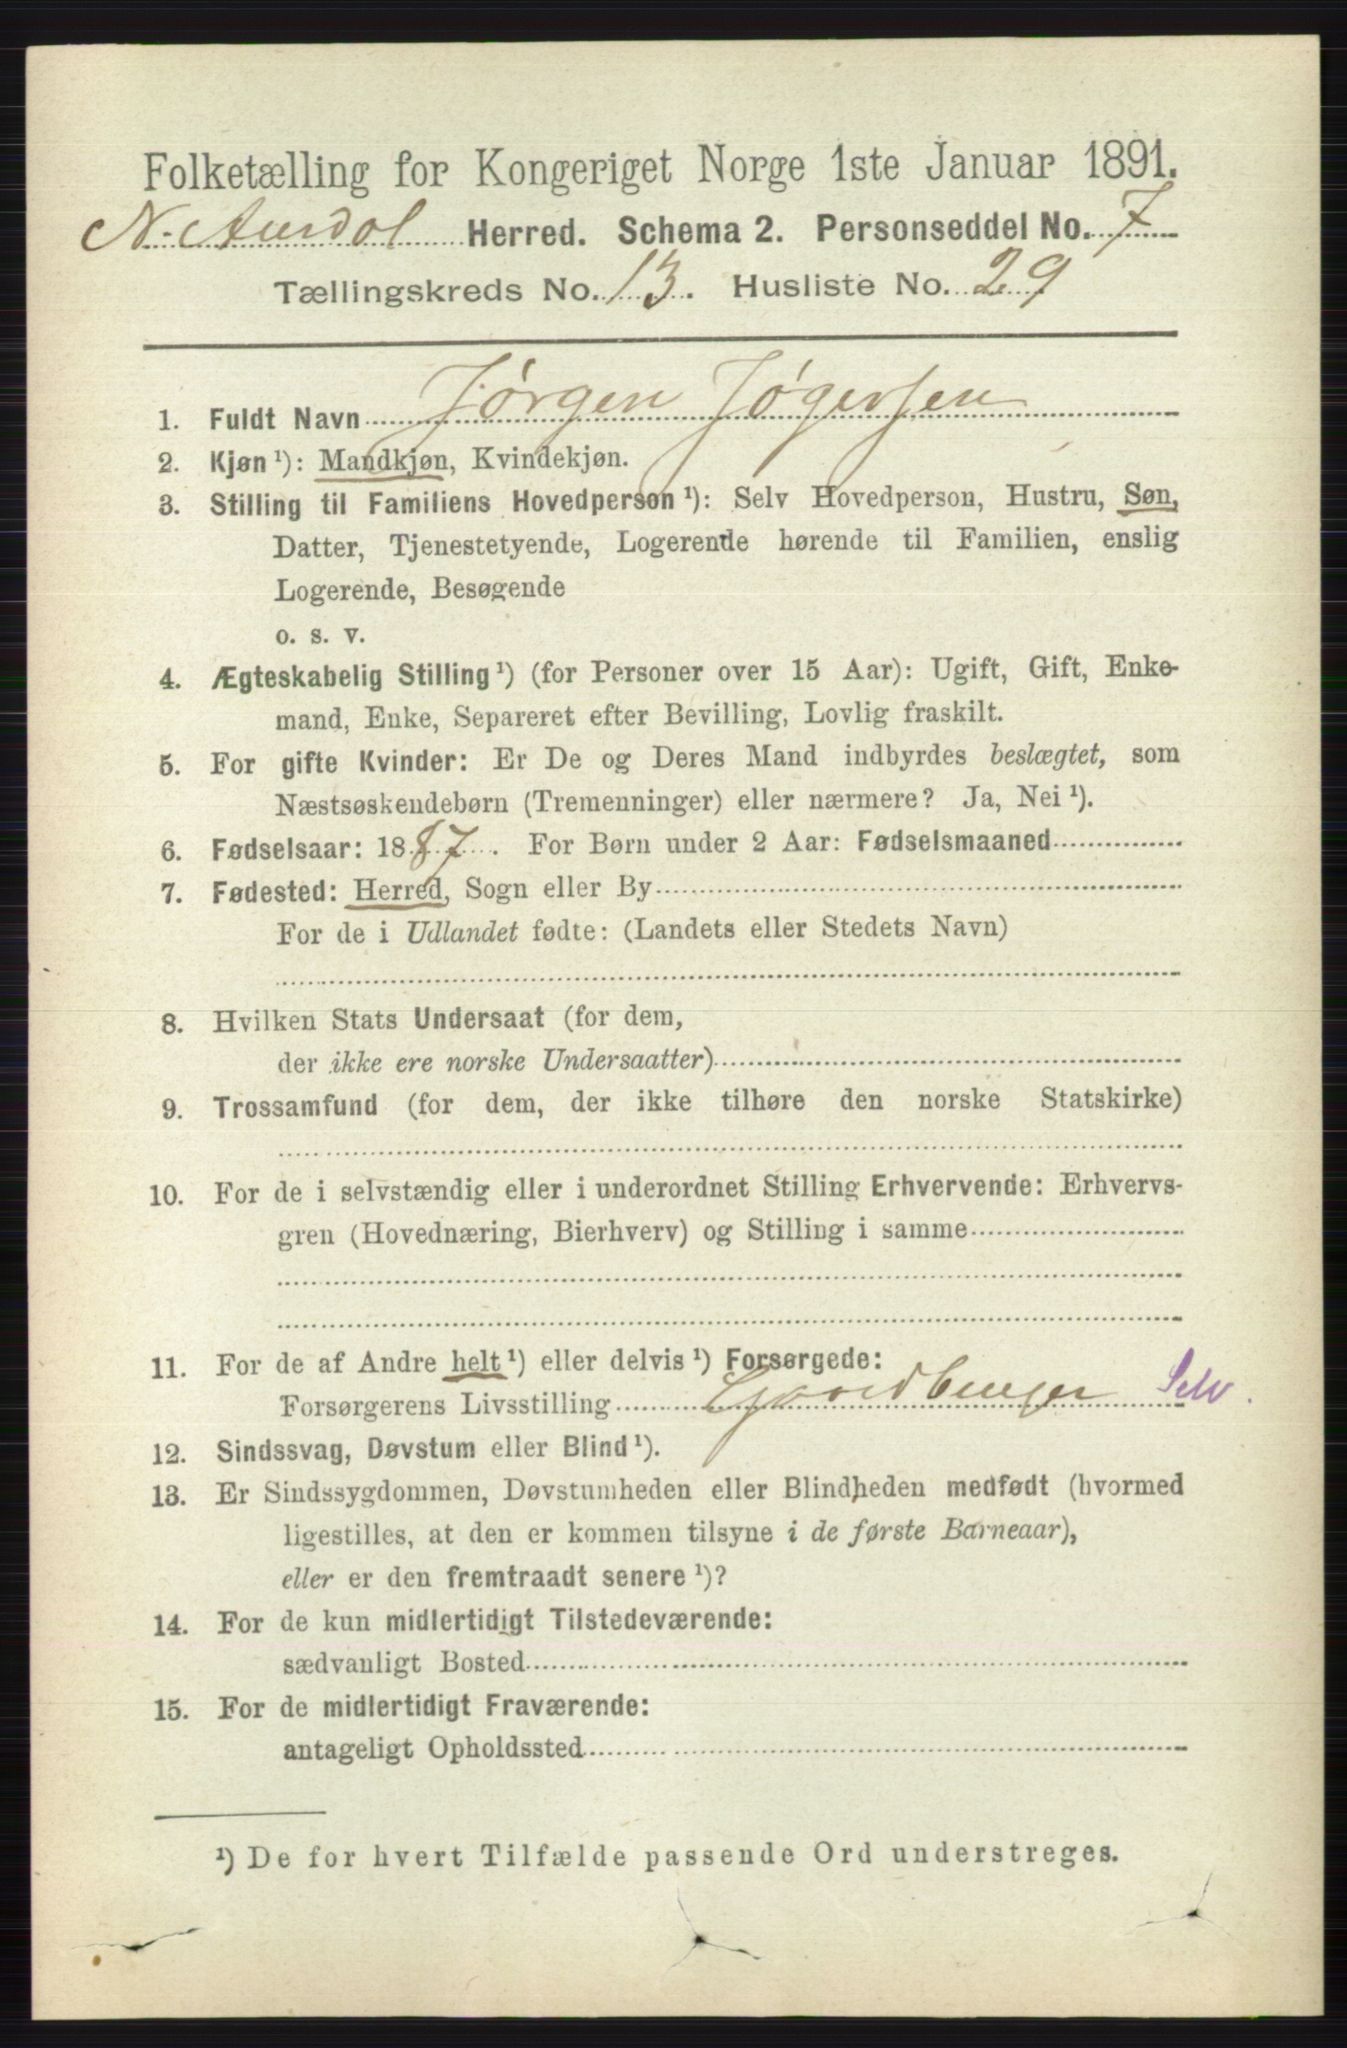 Folketælling for Kongeriget Norge 1ste Januar 1891.
N. Aurdal Herred. Schema 2. Personseddel No. 7
Tællingskreds No. 13. Husliste No. 29
1. Fuldt Navn Jørgen Jøgensen
2. Kjøn ¹): Mandkjøn, Kvindekjøn.
3. Stilling til Familiens Hovedperson ¹): Selv Hovedperson, Hustru, Søn,
Datter, Tjenestetyende, Logerende hørende til Familien, enslig
Logerende, Besøgende
o. s. v.
4. Ægteskabelig Stilling ¹) (for Personer over 15 Aar): Ugift, Gift, Enke-
mand, Enke, Separeret efter Bevilling, Lovlig fraskilt.
5. For gifte Kvinder: Er De og Deres Mand indbyrdes beslægtet, som
Næstsøskendebørn (Tremenninger) eller nærmere? Ja, Nei ¹).
6. Fødselsaar: 1887. For Børn under 2 Aar: Fødselsmaaned
7. Fødested: Herred, Sogn eller By
For de i Udlandet fødte: (Landets eller Stedets Navn)
8. Hvilken Stats Undersaat (for dem,
der ikke ere norske Undersaatter)
9. Trossamfund (for dem, der ikke tilhøre den norske Statskirke)
10. For de i selvstændig eller i underordnet Stilling Erhvervende: Erhvervs-
gren (Hovednæring, Bierhverv) og Stilling i samme
11. For de af Andre helt ¹) eller delvis ¹) Forsørgede:
Forsørgerens Livsstilling Gaardbruger Selv.
12. Sindssvag, Døvstum eller Blind ¹).
13. Er Sindssygdommen, Døvstumheden eller Blindheden medfødt (hvormed
ligestilles, at den er kommen tilsyne i de første Barneaar),
eller er den fremtraadt senere ¹)?
14. For de kun midlertidigt Tilstedeværende:
sædvanligt Bosted
15. For de midlertidigt Fraværende:
antageligt Opholdssted
¹) De for hvert Tilfælde passende Ord understreges.